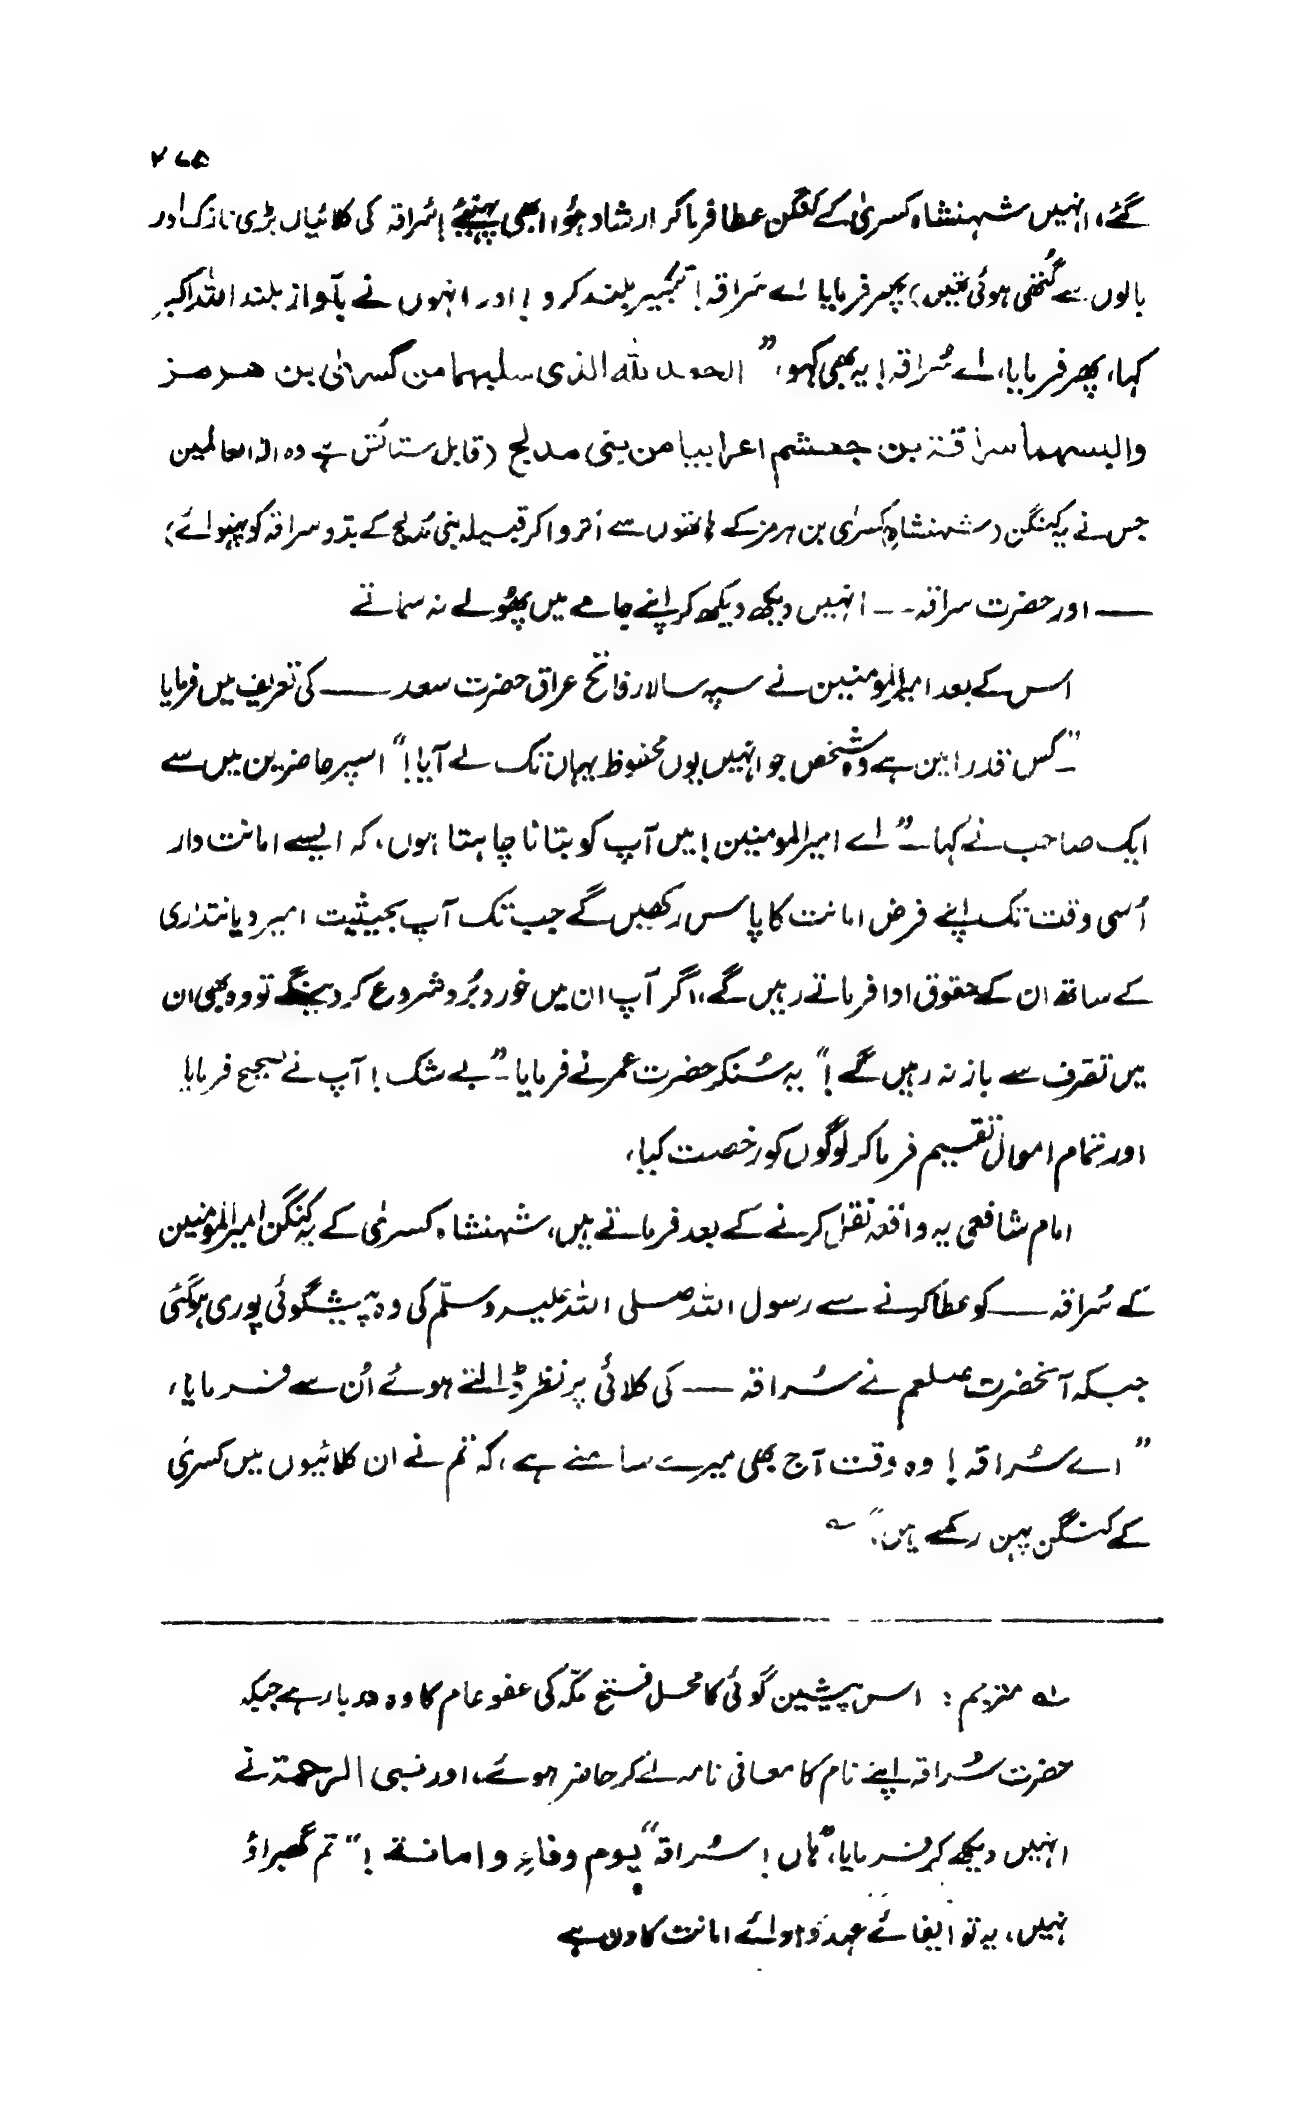 ۲۷۵
گئے، انہیں شہنشاہ کسریٰ کے کنگن عطا فرما کر ارشاد ہُوا ابھی پہنیئے! سُراقہ کی کلائیاں بڑی نازک اور
بالوں سے گُتھی ہوئی تھیں) پھر فرمایا اے سُراقہ! تکبیر بلند کرو! اور انہوں نے بآواز بلند اللہ اکبر
کہا، پھر فرمایا، اے سُراقہ! یہ بھی کہو، ”الحمد للہ الذی سلبهما من کسریٰ بن هرمز
والبسهما سراقة بن جعشم اعرابیا من بنی مدلج (قابل ستائش ہے وہ الہ العالمین
جس نے یہ کنگن (شہنشاہِ کسریٰ بن ہرمز کے ہاتھوں سے اُتروا کر قبیلہ بنی مُدلج کے بدّو سراقہ کو پہنوائے)
— اور حضرت سراقہ -- انہیں دیکھ دیکھ کر اپنے جامے میں پھُولے نہ سماتے
اس کے بعد امیر المومنین نے سپہ سالار فاتح عراق حضرت سعد — کی تعریف میں فرمایا
”کس قدر امین ہے وہ شخص جو انہیں یوں محفوظ یہاں تک لے آیا!“ اسپر حاضرین میں سے
ایک صاحب نے کہا ”اے امیر المومنین! میں آپ کو بتانا چاہتا ہوں، کہ ایسے امانت دار
اُسی وقت تک اپنے فرض امانت کا پاس رکھیں گے جب تک آپ بحیثیت امیر دیانتداری
کے ساتھ ان کے حقوق ادا فرماتے رہیں گے، اگر آپ ان میں خورد بُرد شروع کر دینگے تو وہ بھی ان
میں تصرف سے باز نہ رہیں گے!“ یہ سُنکر حضرت عمر نے فرمایا ”بے شک! آپ نے صحیح فرمایا
اور تمام اموال تقسیم فرما کر لوگوں کو رخصت کیا،
امام شافعی یہ واقعہ نقل کرنے کے بعد فرماتے ہیں، شہنشاہ کسریٰ کے یہ کنگن امیر المومنین
کے سُراقہ — کو عطا کرنے سے رسول اللہ صلی اللہ علیہ وسلّم کی وہ پیشگوئی پوری ہوگئی
جبکہ آنحضرت صلعم نے سُراقہ — کی کلائی پر نظر ڈالتے ہوئے اُن سے فرمایا،
”اے سُراقہ! وہ وقت آج بھی میرے سامنے ہے، کہ تم نے ان کلائیوں میں کسریٰ
کے کنگن پہن رکھے ہیں“ ؎
؎ مترجم: اس پیشین گوئی کا محل فتح مکّہ کی عفو عام کا وہ دربار ہے جبکہ
حضرت سُراقہ اپنے نام کا معافی نامہ لے کر حاضر ہوئے، اور نبی الرحمۃ نے
انہیں دیکھ کر فرمایا، ”ہاں! سُراقہ ”یوم وفاءٍ و امانة!“ تم گھبراؤ
نہیں، یہ تو ایفائے عہد و اوائے امانت کا دن ہے